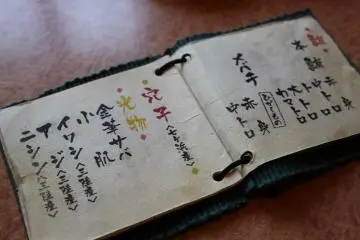 鮪
本鮪
中トロ
大トロ
カマトロ
ひがしもの
メバチ 赤身
中トロ
穴子〈七ヶ浜産〉
光物
金華サバ
小肌
イワシ〈三陸産〉
アジ〈三陸産〉
ニシン〈三陸産〉